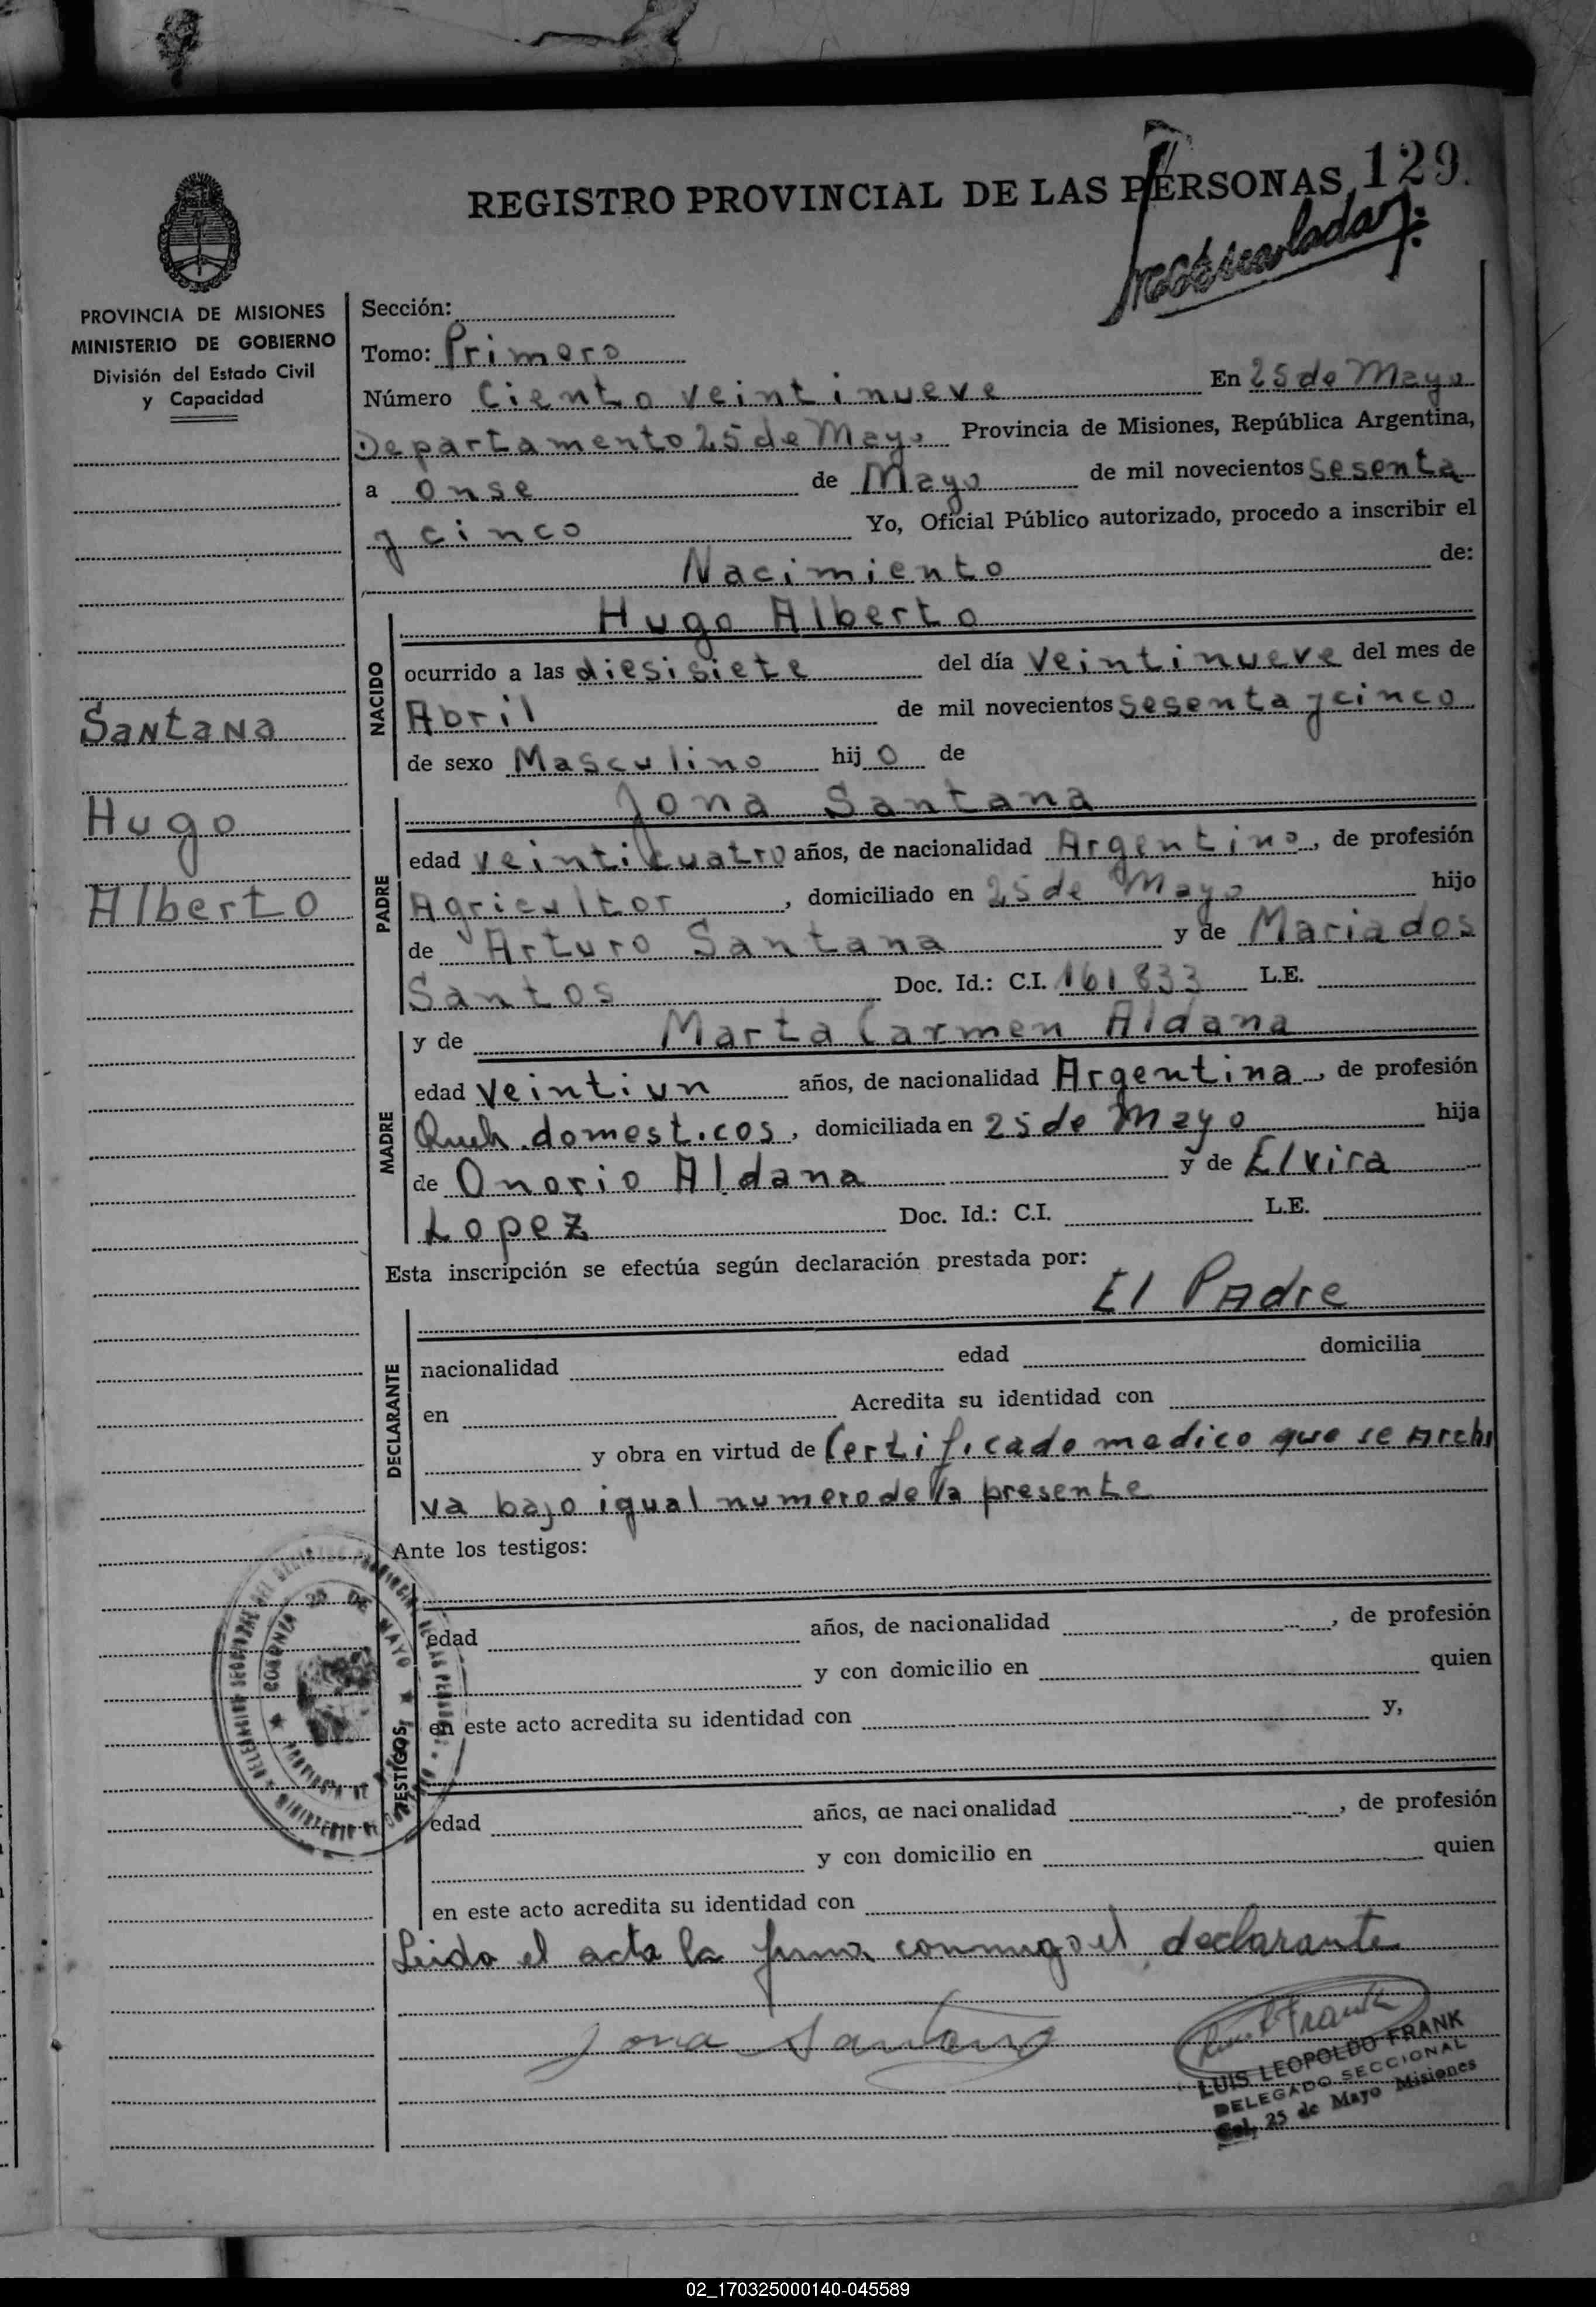 REGISTRO PROVINCIAL DE LAS PERSONAS 129
PROVINCIA DE MISIONES
MINISTERIO DE GOBIERNO
División del Estado Civil
y Capacidad
Santana
Hugo
Alberto
Sección:
Tomo: Primero
Número Ciento veintinueve En 25 de Mayo
Departamento 25 de Mayo Provincia de Misiones, República Argentina,
a onse de Mayo de mil novecientos sesenta
y cinco Yo, Oficial Público autorizado, procedo a inscribir el
Nacimiento de:
NACIDO
Hugo Alberto
ocurrido a las diesisiete del día veintinueve del mes de
Abril de mil novecientos sesenta y cinco
de sexo Masculino hijo de
PADRE
Jona Santana
edad veinticuatro años, de nacionalidad Argentino, de profesión
Agricultor, domiciliado en 25 de Mayo hijo
de Arturo Santana y de Maria dos
Santos Doc. Id.: C.I. 161833 L.E.
MADRE
y de Marta Carmen Aldana
edad veintiun años, de nacionalidad Argentina, de profesión
Queh. domesticos, domiciliada en 25 de Mayo hija
de Onorio Aldana y de Elvira
Lopez Doc. Id.: C.I. L.E.
Esta inscripción se efectúa según declaración prestada por:
El Padre
DECLARANTE
nacionalidad edad domicilia
en Acredita su identidad con
y obra en virtud de Certificado medico que se Archi
va bajo igual numero de la presente
Ante los testigos:
TESTIGOS
edad años, de nacionalidad, de profesión
y con domicilio en quien
en este acto acredita su identidad con y,
edad años, de nacionalidad, de profesión
y con domicilio en quien
en este acto acredita su identidad con
Leida el acta la firma conmigo el declarante
Jona Santana
LUIS LEOPOLDO FRANK
DELEGADO SECCIONAL
Col. 25 de Mayo Misiones
COLONIA 25 DE MAYO
02_170325000140-045589